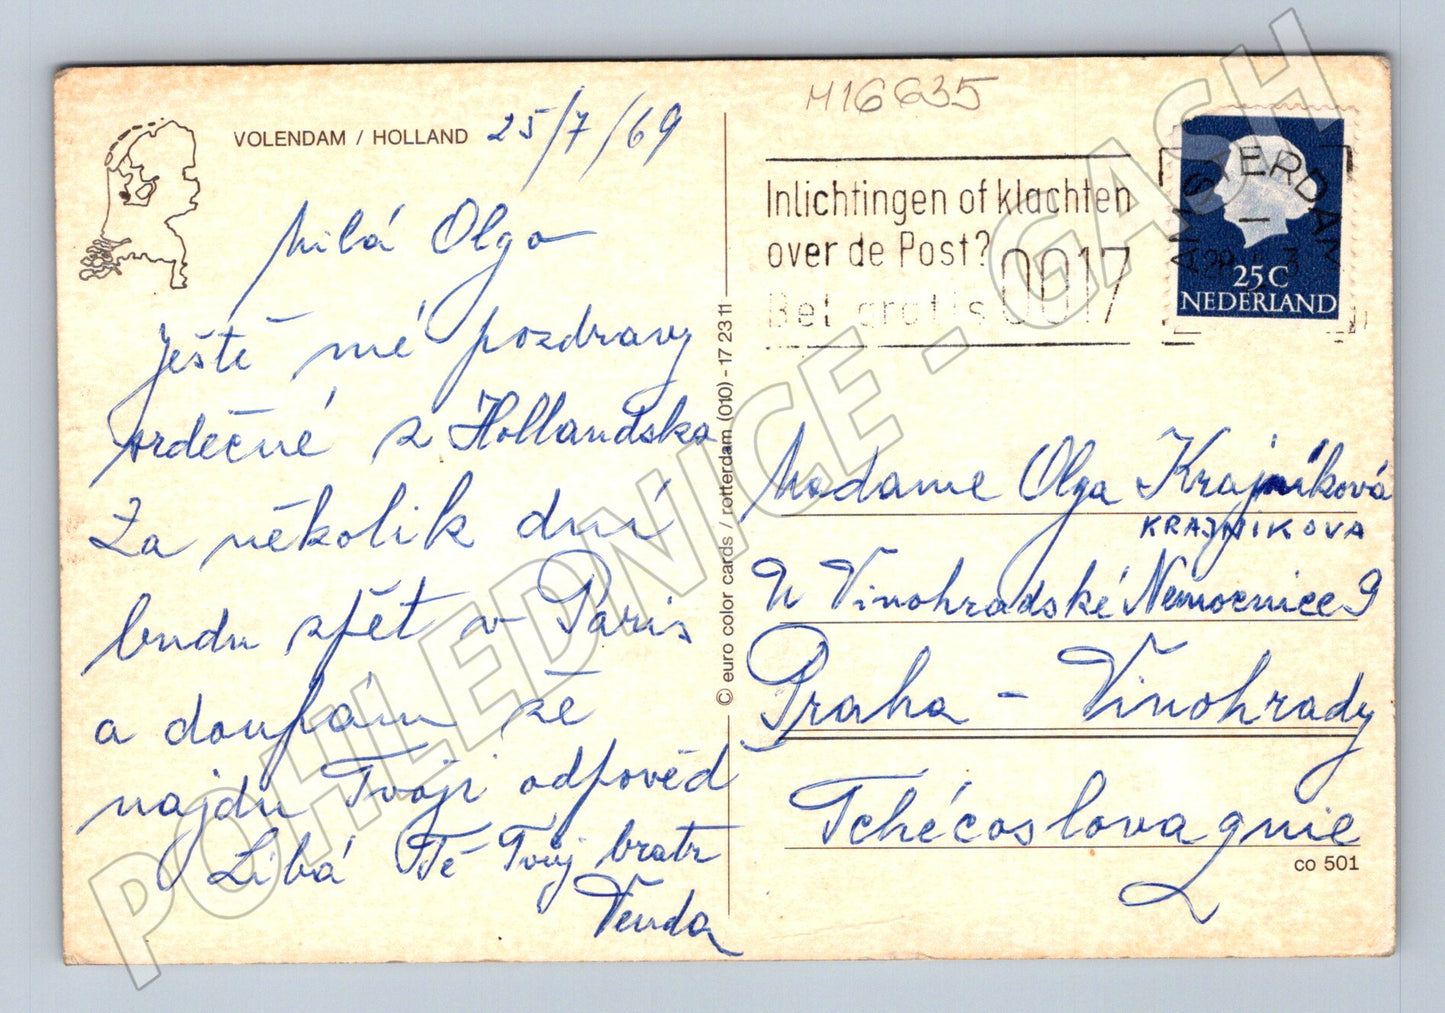 VOLENDAM / HOLLAND 25/7/69
Milá Olgo
Ještě mé pozdravy
srdečné z Hollandska
Za několik dní
budu zpět v Paris
a doufám že
najdu Tvoji odpověd
Líbá Tě Tvůj bratr
Venda
© euro color cards / rotterdam (010) - 17 23 11
M16635
Inlichtingen of klachten
over de Post?
Bel gratis 0017
AMSTERDAM
25 C
NEDERLAND
Madame Olga Krajníková
KRAJNIKOVA
U Vinohradské Nemocnice 9
Praha - Vinohrady
Tchécoslovaqnie
co 501
POHLEDNICE - GASH